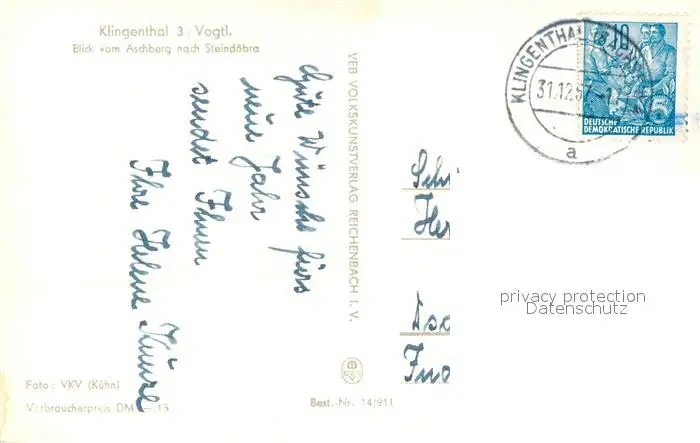 Klingenthal 3/Vogtl.
Blick vom Aschberg nach Steindöbra
Gute Wünsche fürs
neue Jahr
sendet Ihnen
Ihre Helene
VEB VOLKSKUNSTVERLAG REICHENBACH I. V.
Foto: VKV (Kühn)
Verbraucherpreis DM —,15
Best.-Nr. 14/911
KLINGENTHAL
31.12.57
a
10
DEUTSCHE
DEMOKRATISCHE REPUBLIK
privacy protection
Datenschutz